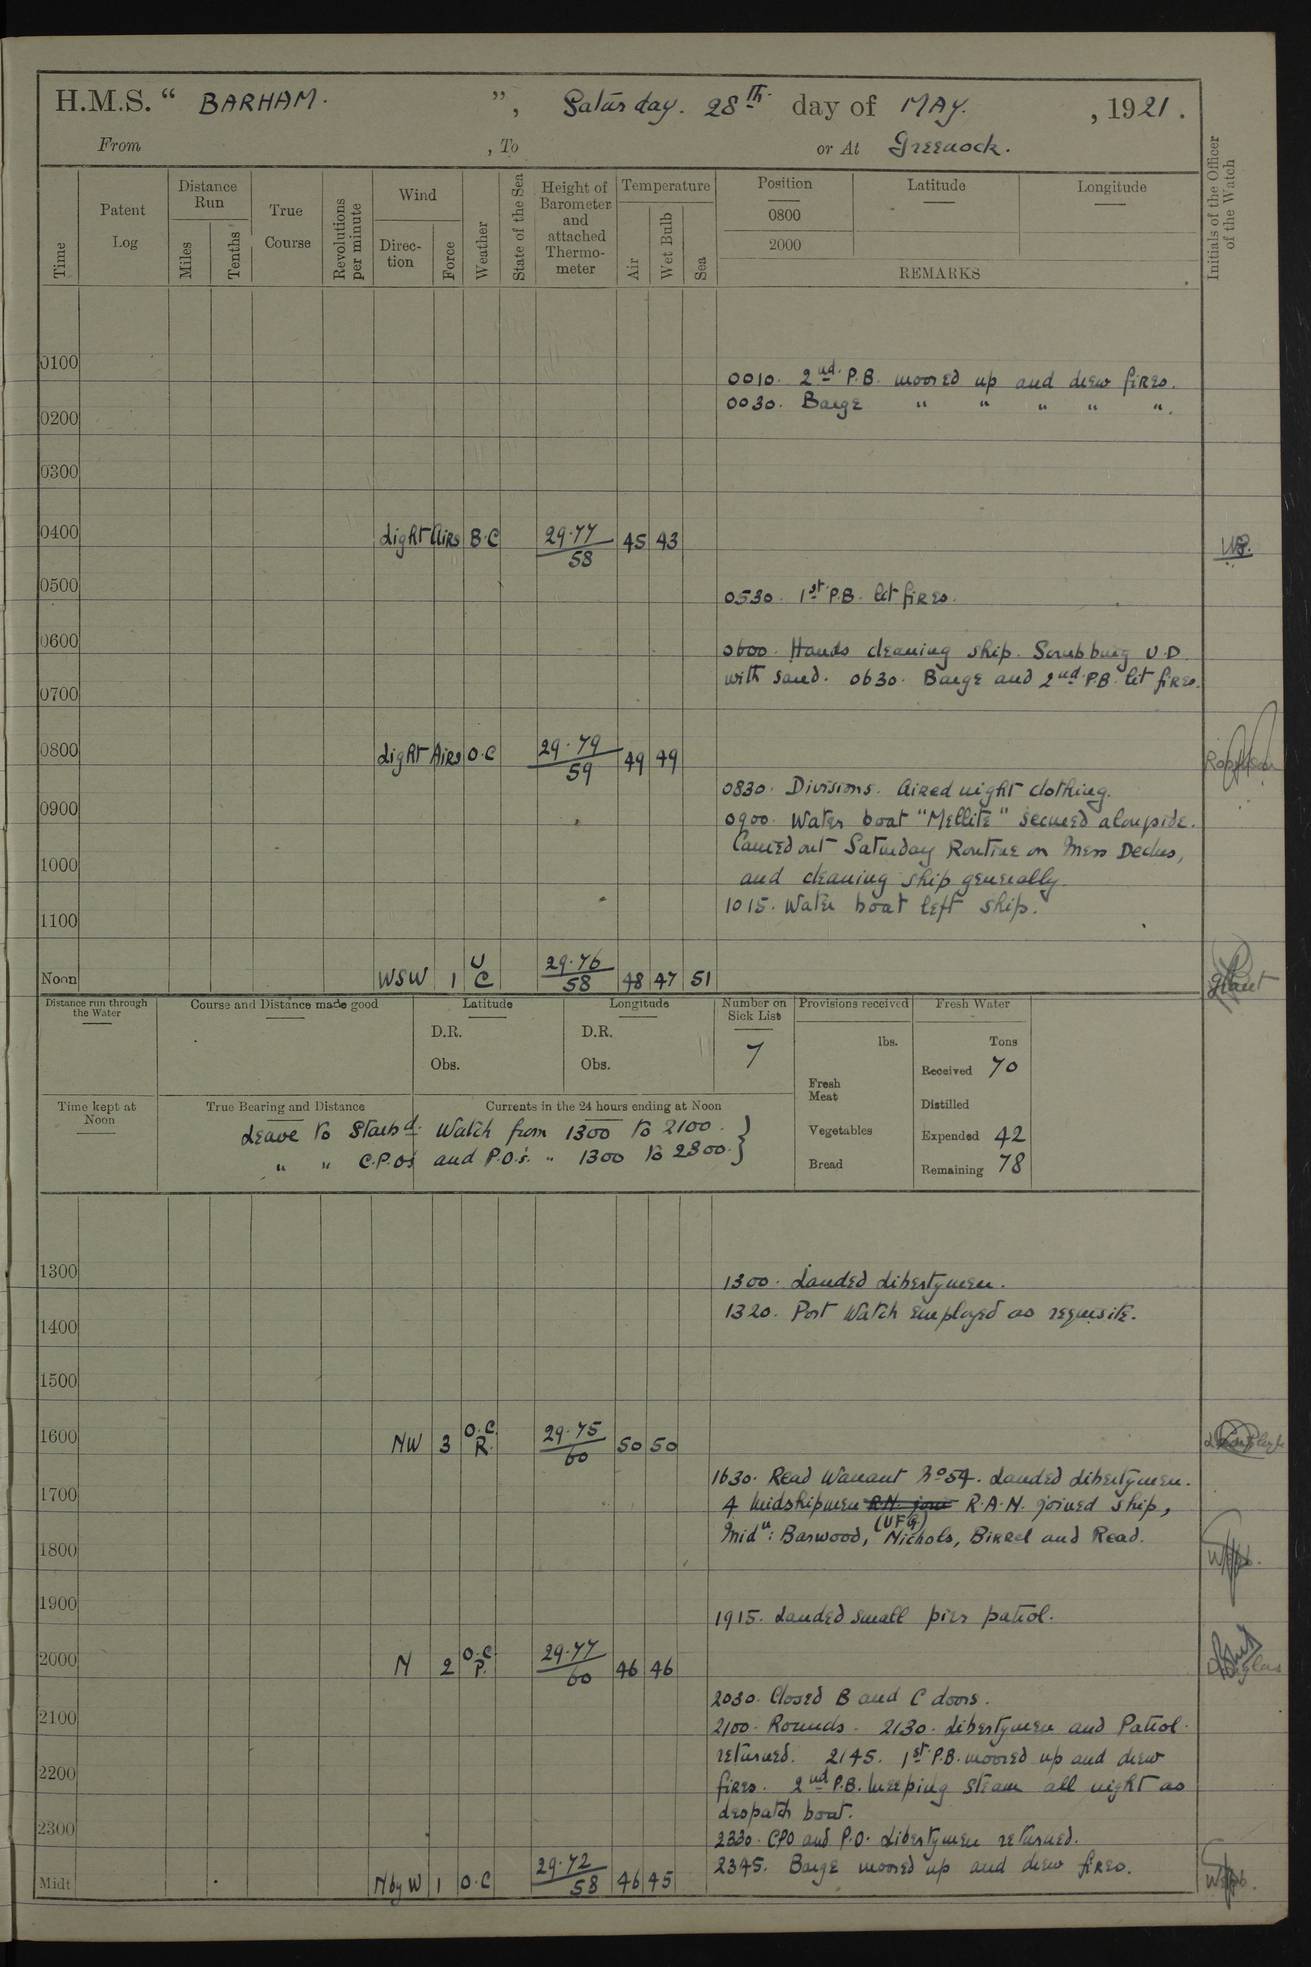 H.M.S. “ BARHAM. ”, Saturday. 28th. day of MAY. , 1921.
From , To or At Greenock.
Time Patent Log Distance Run Miles Tenths True Course Revolutions per minute Wind Direc-tion Force Weather State of the Sea Height of Barometer and attached Thermo-meter Temperature Air Wet Bulb Sea Position 0800 2000 Latitude Longitude REMARKS Initials of the Officer of the Watch
0100
0010. 2nd. P.B. moored up and drew fires.
0030. Barge " " " " ".
0200
0300
0400 Light Airs B.C 29.77/58 45 43
0500
0530. 1st. P.B. lit fires.
0600
0600. Hands cleaning ship. Scrubbing U.D
with sand. 0630. Barge and 2nd. P.B. lit fires.
0700
0800 Light Airs O.C 29.79/59 49 49
0830. Divisions. Aired night clothing.
0900
0900. Water boat "Mellite" secured alongside.
Carried out Saturday Routine on Mess Decks,
1000
and cleaning ship generally.
1015. Water boat left ship.
1100
Noon WSW 1 U C 29.76/58 48 47 51 Grant
Distance run through the Water
Course and Distance made good
Latitude D.R. Obs.
Longitude D.R. Obs.
Number on Sick List 7
Provisions received lbs. Fresh Meat Vegetables Bread
Fresh Water Tons
Received 70
Distilled
Expended 42
Remaining 78
Time kept at Noon
True Bearing and Distance
Currents in the 24 hours ending at Noon
Leave to Starbd. Watch from 1300 to 2100.
" " C.P.Os and P.O.s. " 1300 to 2300.
1300
1300. Landed Libertymen.
1320. Port Watch employed as requisite.
1400
1500
1600 NW 3 O.C. R. 29.75/60 50 50
1630. Read Warrant No 54. Landed Libertymen.
1700
4 Midshipmen R.N. join R.A.N. joined ship,
(UFG)
Midn: Barwood, Nichols, Birrel and Read.
1800
1900
1915. Landed small pier patrol.
2000 N 2 O.C. P. 29.77/60 46 46 Douglas
2030. Closed B and C doors.
2100
2100. Rounds. 2130. Libertymen and Patrol
returned. 2145. 1st. P.B. moored up and drew
2200
fires. 2nd P.B. keeping steam all night as
despatch boat.
2300
2330. CPO and P.O. Libertymen returned.
2345. Barge moored up and drew fires.
Midt N by W 1 O.C 29.72/58 46 45